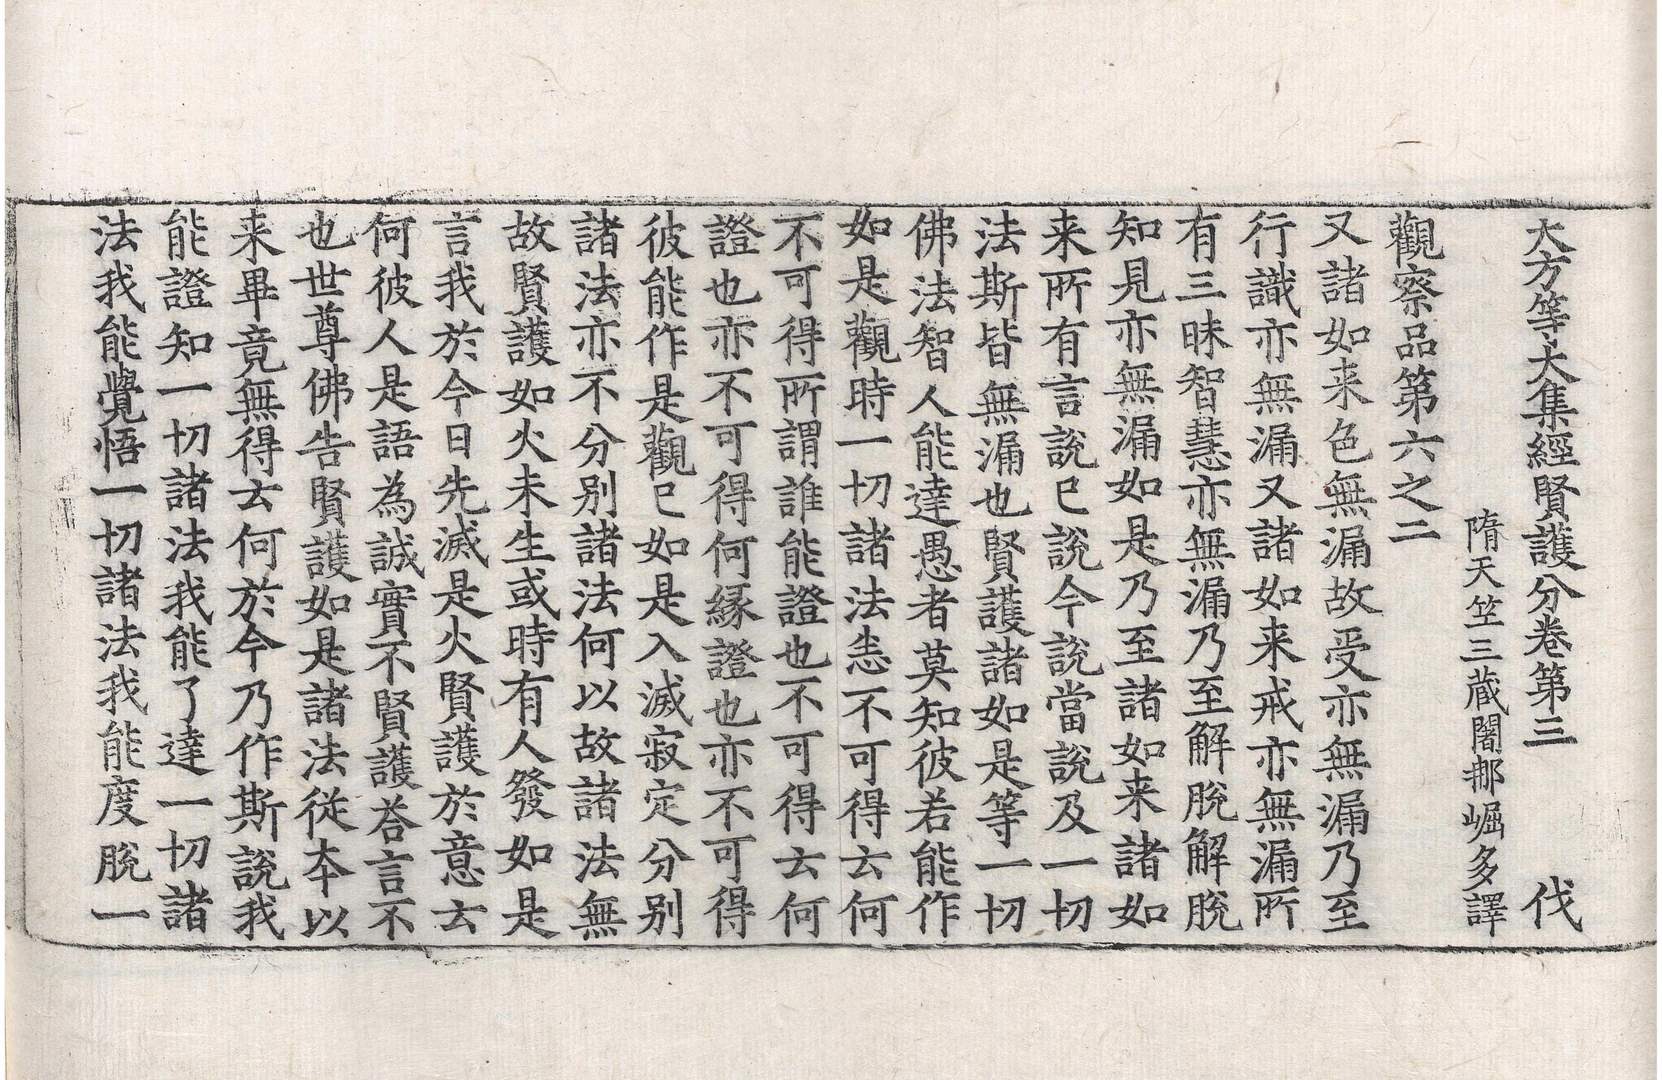 大方等大集經賢護分卷第三 伐
隋天竺三藏闍那崛多譯
觀察品第六之二
又諸如来色無漏故受亦無漏乃至
行識亦無漏又諸如来戒亦無漏所
有三昧智慧亦無漏乃至解脫解脫
知見亦無漏如是乃至諸如来諸如
来所有言說已說今說當說及一切
法斯皆無漏也賢護諸如是等一切
佛法智人能達愚者莫知彼若能作
如是觀時一切諸法悉不可得云何
不可得所謂誰能證也不可得云何
證也亦不可得何緣證也亦不可得
彼能作是觀已如是入滅寂定分別
諸法亦不分別諸法何以故諸法無
故賢護如火未生或時有人發如是
言我於今日先滅是火賢護於意云
何彼人是語為誠實不賢護荅言不
也世尊佛告賢護如是諸法從本以
来畢竟無得云何於今乃作斯說我
能證知一切諸法我能了達一切諸
法我能覺悟一切諸法我能度脫一